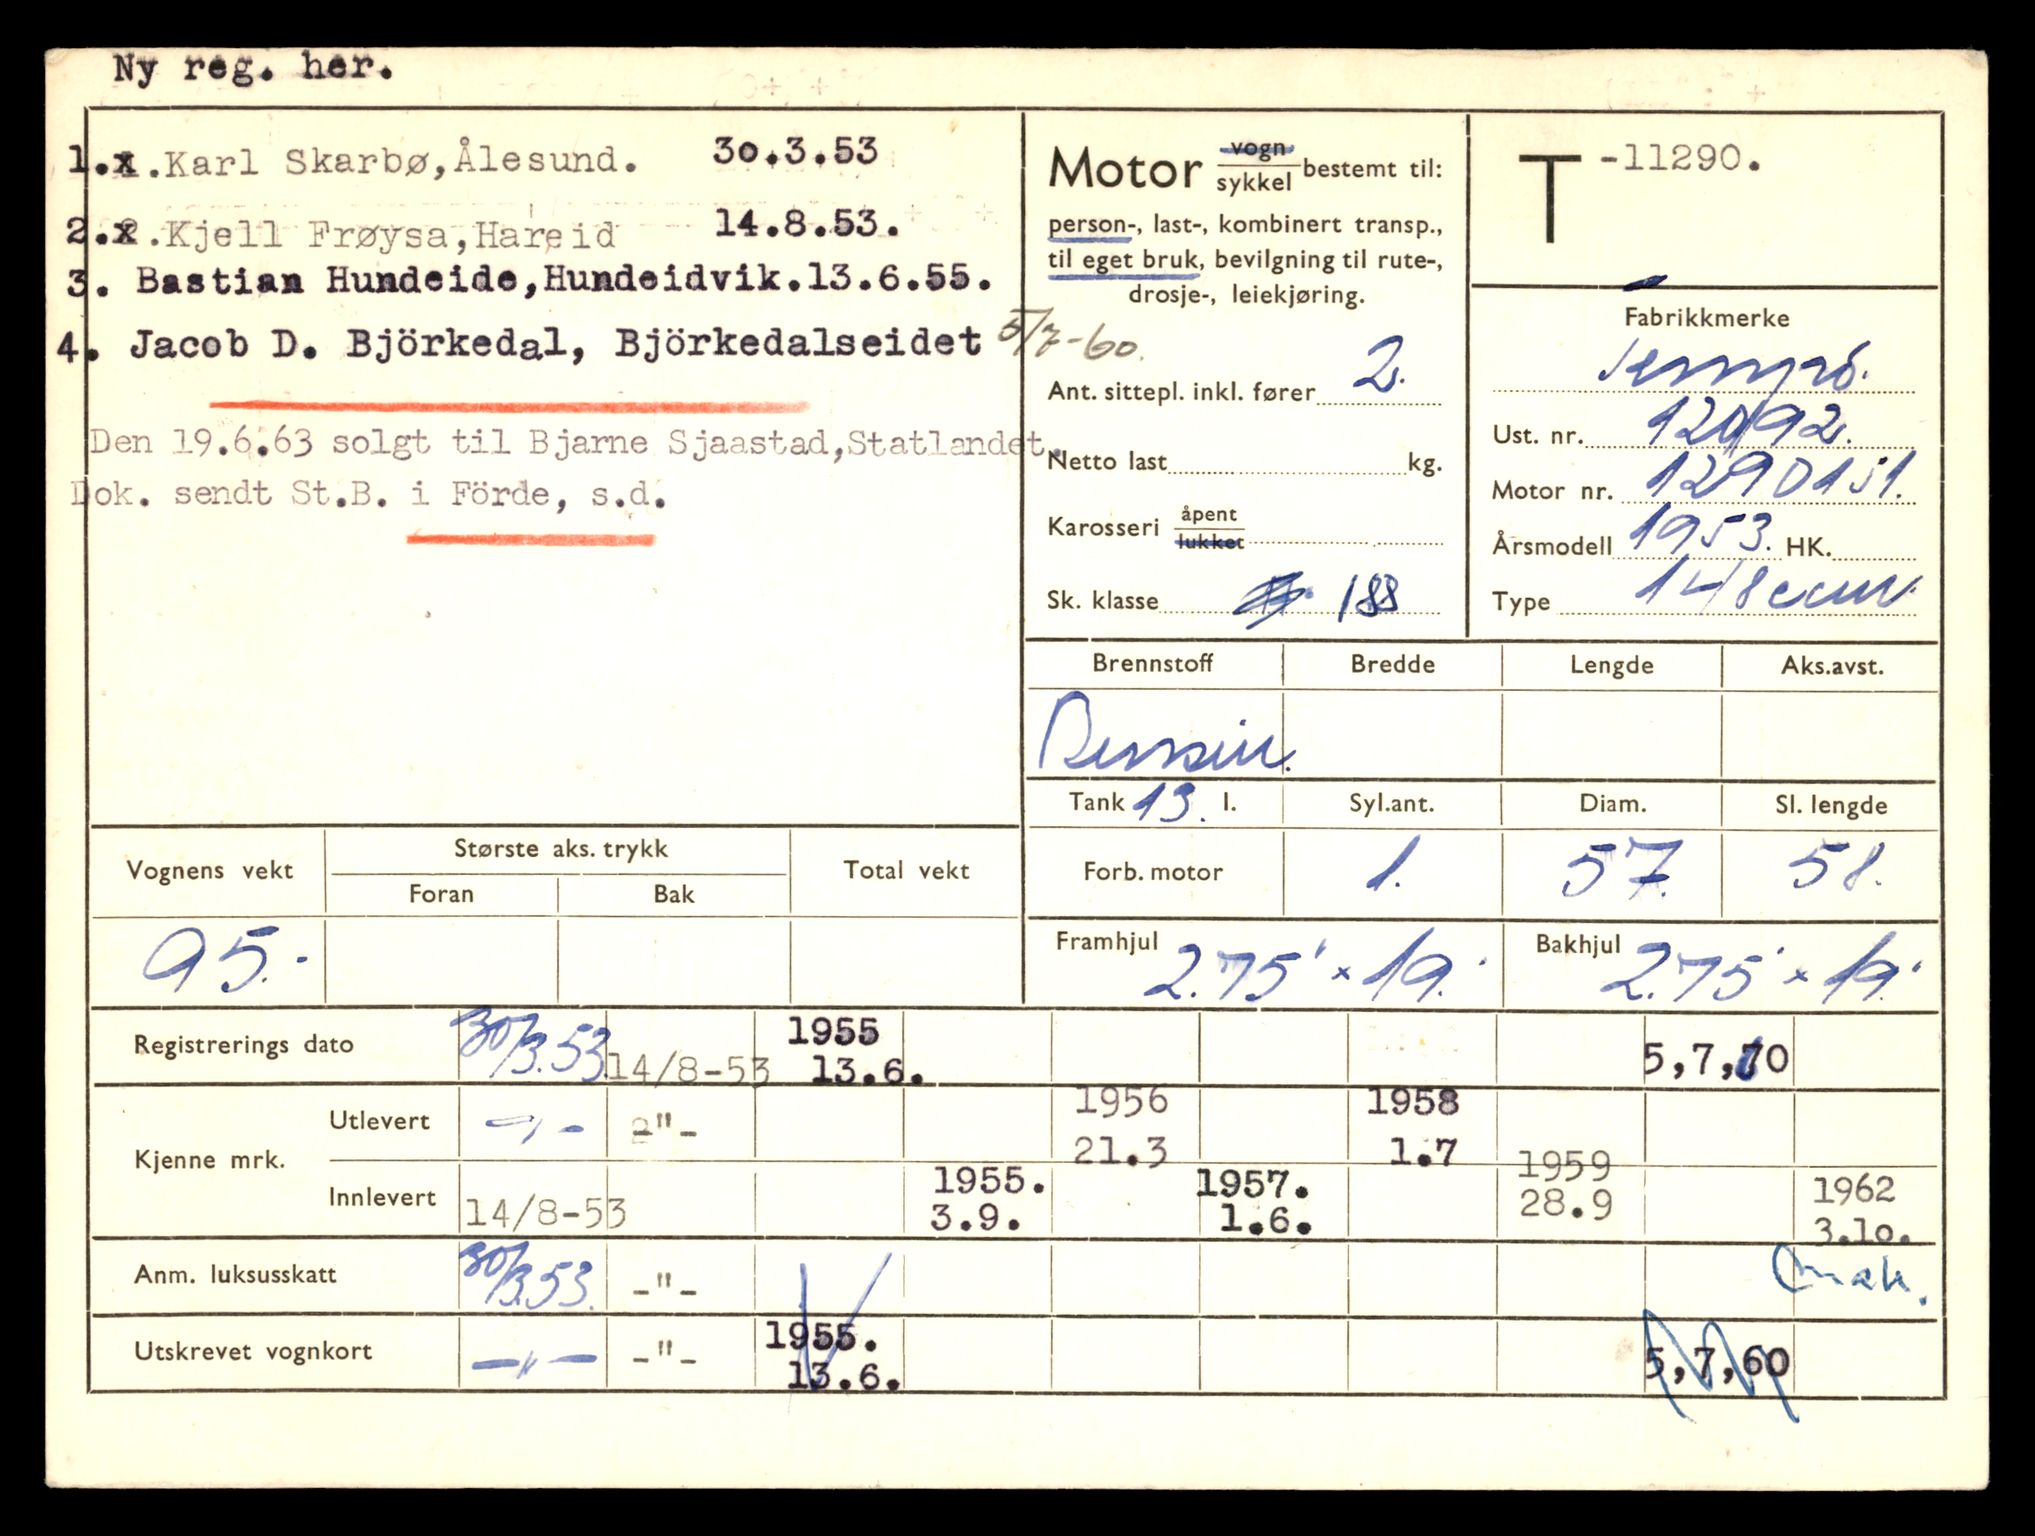 Ny reg. her.
1.x.Karl Skarbø,Ålesund. 30.3.53
2.x.Kjell Frøysa,Hareid 14.8.53.
3. Bastian Hundeide,Hundeidvik.13.6.55.
4. Jacob D. Björkedal, Björkedalseidet 5/7-60.
Den 19.6.63 solgt til Bjarne Sjaastad,Statlandet.
Dok. sendt St.B. i Förde, s.d.
Motor vogn sykkel bestemt til:
person-, last-, kombinert transp.,
til eget bruk, bevilgning til rute-,
drosje-, leiekjøring.
Ant. sittepl. inkl. fører 2.
Netto last kg.
Karosseri åpent lukket
Sk. klasse 188
T -11290.
Fabrikkmerke
Tempo.
Ust. nr. 120192.
Motor nr. 1290151.
Årsmodell 1953. HK.
Type 148 ccm.
Brennstoff Bredde Lengde Aks.avst.
Bensin.
Tank 13. l. Syl.ant. Diam. Sl. lengde
Forb. motor 1. 57. 58.
Vognens vekt Største aks. trykk Total vekt
Foran Bak
95.-
Framhjul 2.75" x 19." Bakhjul 2.75" x 19."
Registrerings dato 30/3.53. 14/8-53 1955 13.6. 5,7,70
Kjenne mrk.
Utlevert -"- -"- 1956 21.3 1958 1.7
Innlevert 14/8-53 1955. 3.9. 1957. 1.6. 1959 28.9 1962 3.10.
Anm. luksusskatt 30/3.53. -"-
Utskrevet vognkort -"- -"- 1955. 13.6. 5,7,60